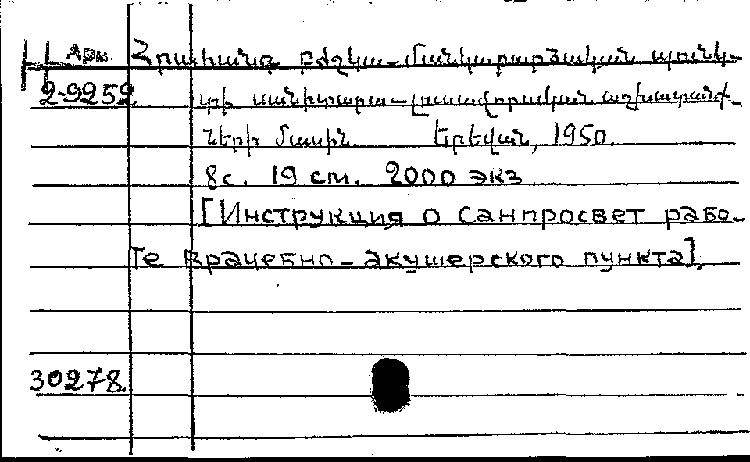 Арм. Հրահանգ բժշկա-մանկաբարձական պունկ-
2-9259. տի սանիտարա-լուսավորական աշխատանք-
ների մասին. Երեվան, 1950.
8с. 19 см. 2000 экз
[Инструкция о санпросвет рабо-
те врачебно-акушерского пункта].
30278.